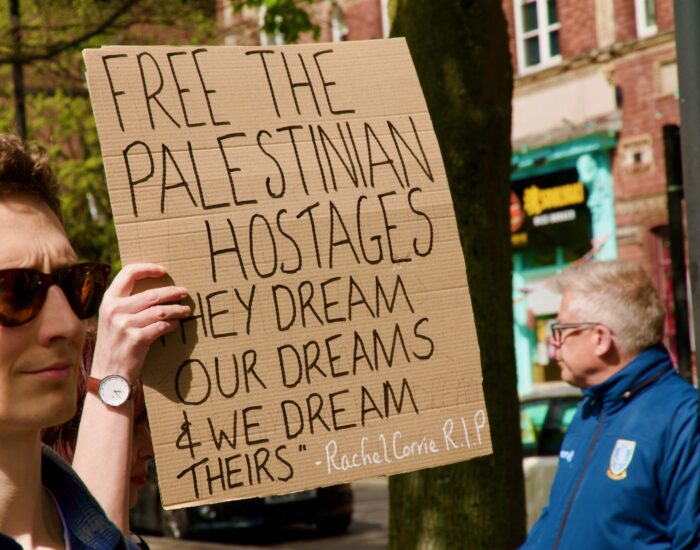 FREE THE
PALESTINIAN
HOSTAGES
THEY DREAM
OUR DREAMS
& WE DREAM
THEIRS" -Rachel Corrie R.I.P